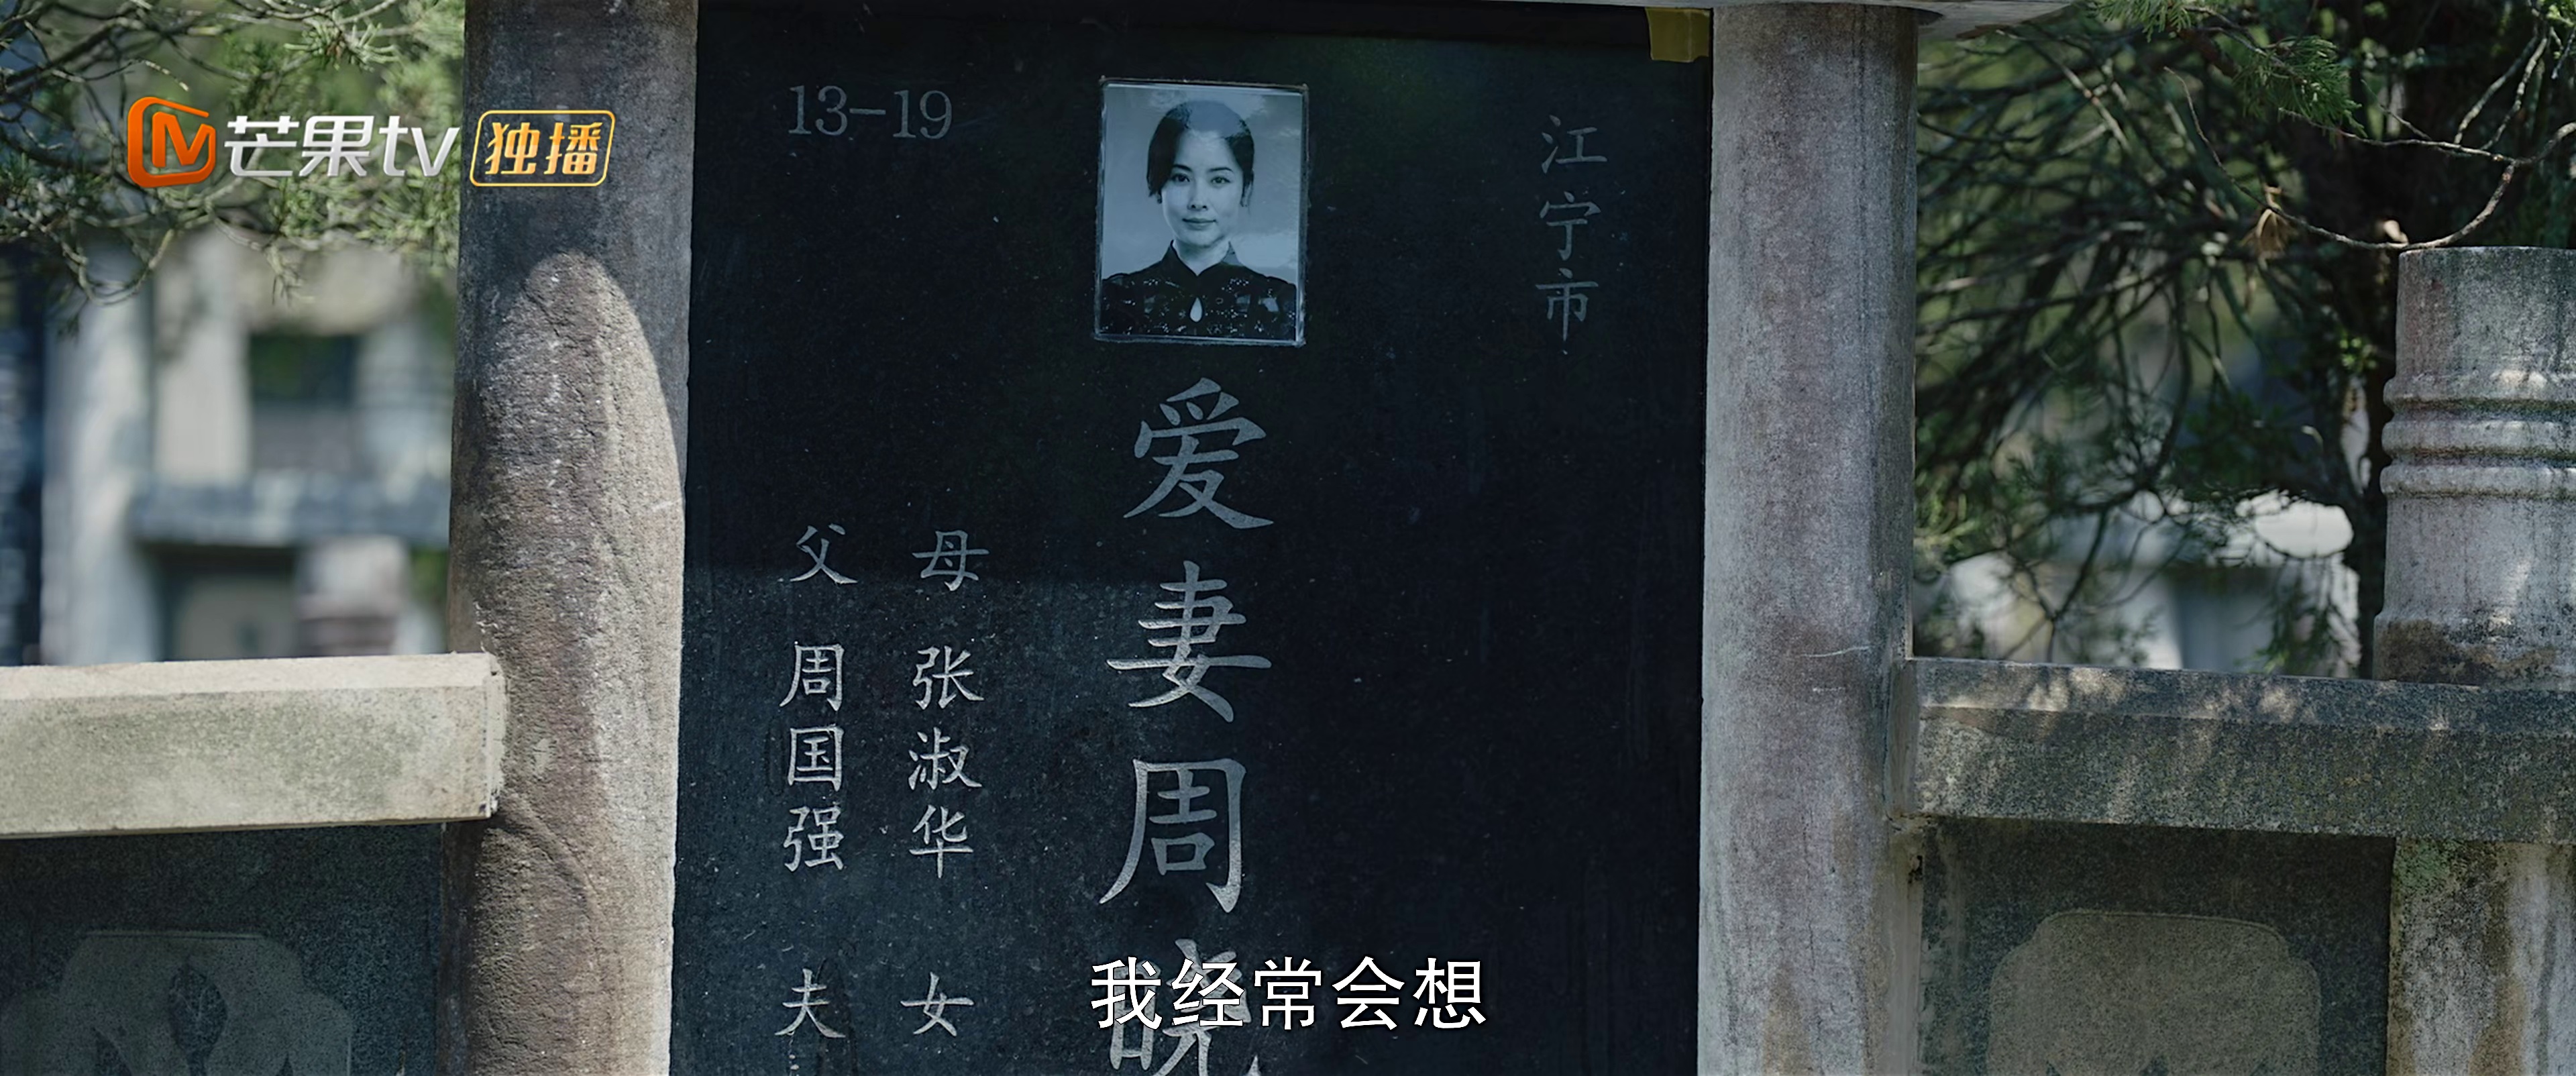 芒果tv 独播
13-19
江宁市
爱妻周晓
母 张淑华 女
父 周国强 夫
我经常会想